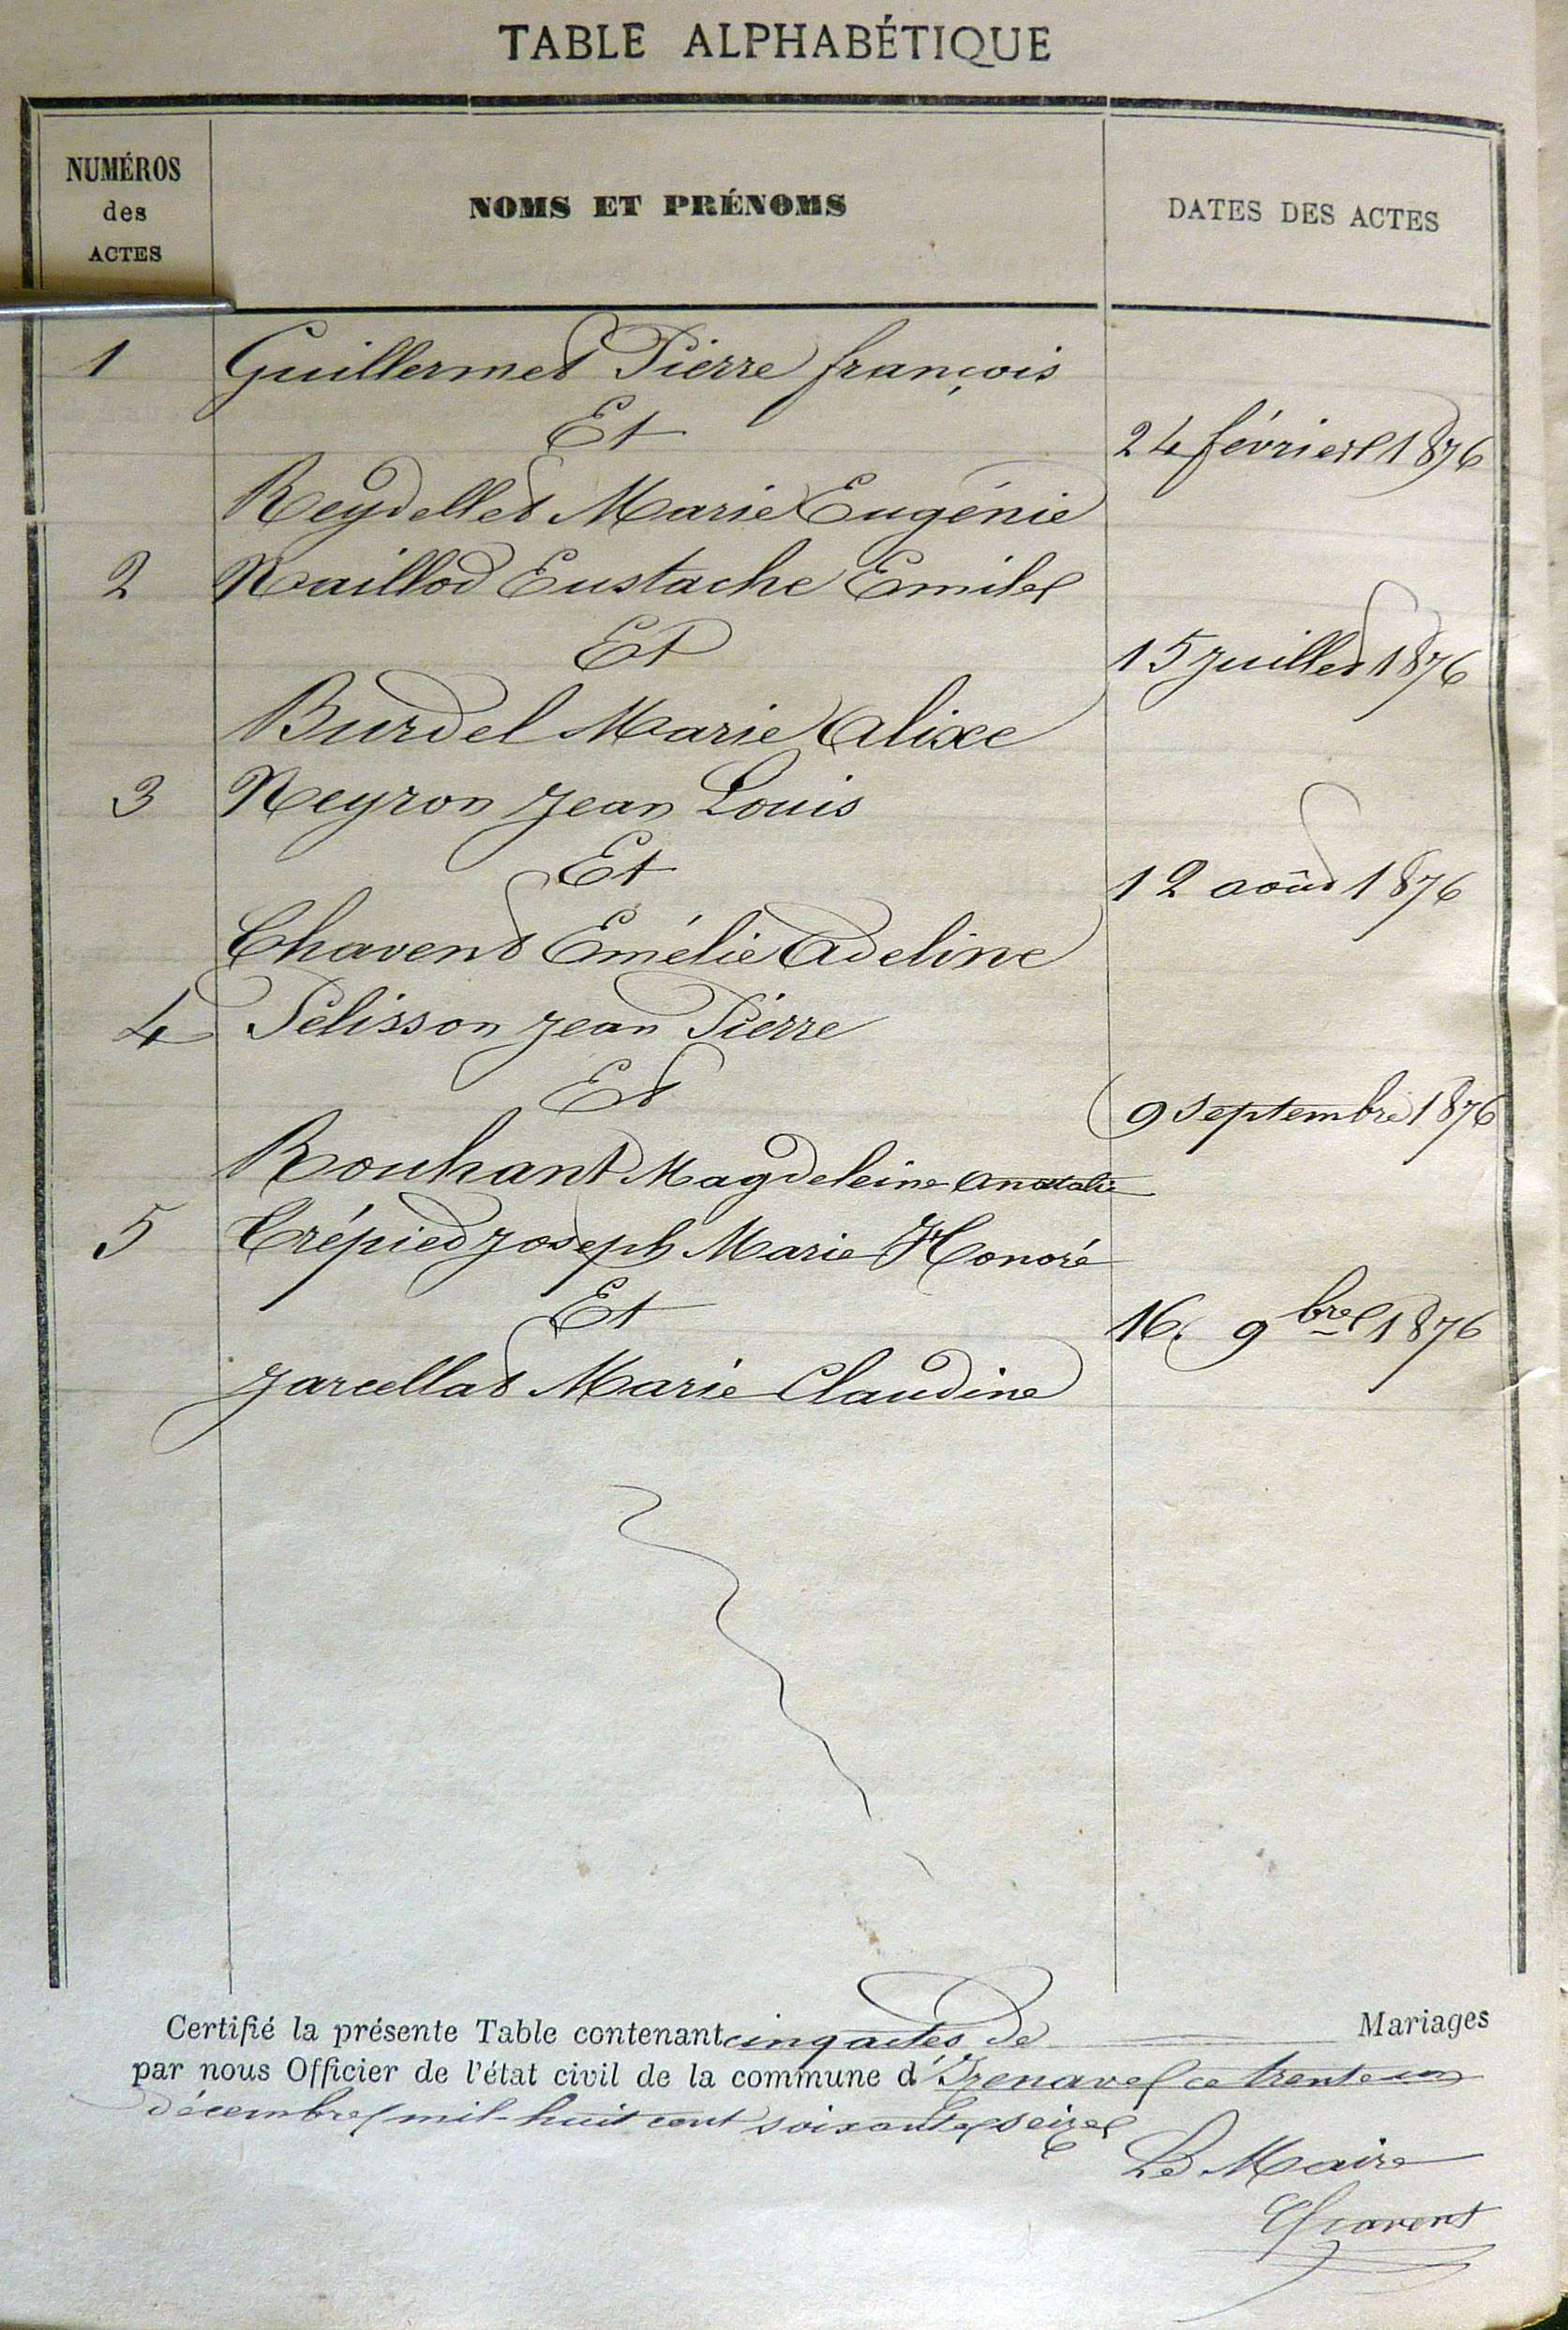 TABLE ALPHABÉTIQUE
NUMÉROS
des
ACTES
NOMS ET PRÉNOMS
DATES DES ACTES
1 Guillermet Pierre françois
Et
24 février 1876
Reydellet Marie Eugénie
2 Maillod Eustache Emile
Et
15 juillet 1876
Burdel Marie Alixe
3 Neyron Jean Louis
Et
12 août 1876
Chavent Emélie Adeline
4 Pélisson Jean Pierre
Et
9 septembre 1876
Rouhant Magdeleine Anatalie
5 Crépied Joseph Marie Honoré
Et
16 9bre 1876
Jarcellat Marie Claudine
Certifié la présente Table contenant cinq actes de Mariages
par nous Officier de l'état civil de la commune d'Izenave ce trente un
décembre mil-huit cent soixante seize
Le Maire
Chavent